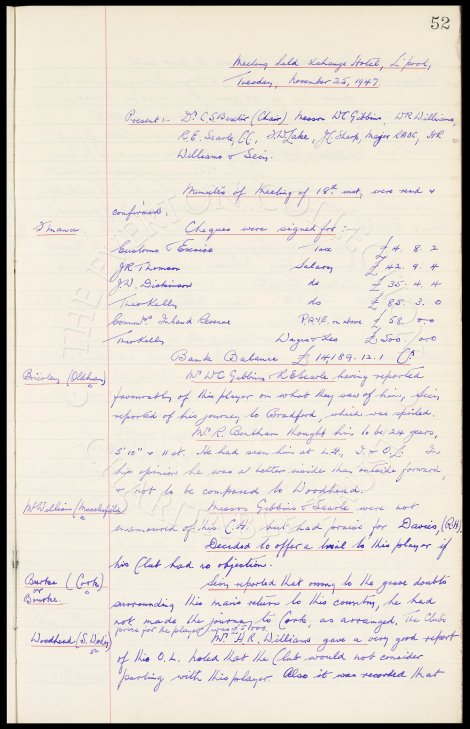 52
Meeting held Exchange Hotel, L'pool,
Tuesday, November 25, 1947.
Present:- Dr C.S. Baxter (Chair) Messrs W.C. Gibbins, W.R. Williams,
R.E. Searle, CC, T.W. Lake, J.C. Sharp, Major RADC, H.R.
Williams & Secy.
Minutes of Meeting of 18th inst. were read &
confirmed.
Finance. Cheques were signed for :-
Customs & Excise Tax £4. 8. 2
J.R. Thomson Salary £42. 9. 4
J.W. Dickinson do £35. 4. 4
Theo Kelly do £85. 3. 0
Commrs Inland Revenue P.A.Y.E. on above £58. / 0-0
Theo Kelly Wages & Fees £500. / 0-0
Bank Balance £14189. 12. 1 Cr.
Brierley (Oldham) Mr W.C. Gibbins & R.E. Searle having reported
favourably of this player on what they saw of him, Secy
reported of his journey to Bradford, which was spoiled.
Mr R. Bentham thought him to be 24 years,
5' 10" & 11 st. He had seen him at I.R., & O.L. In
his opinion he was a better inside than outside forward,
& not to be compared to Woodhead.
McWilliam (Macclesfield) Messrs Gibbins & Searle were not
enamoured of his C.H. but had praise for Davies, (R.H.)
Decided to offer a trial to this player if
his Club had no objection.
Burke (Cork) Secy reported that owing to the grave doubts
or
Bourke surrounding this man's return to this country, he had
not made the journey to Cork, as arranged. The Club's
price for the player was £5000.
Woodhead (S. Davids) Mr H.R. Williams gave a very good report
of this O.L. Noted that the Club would not consider
parting with this player. Also it was recorded that
THE EVERTON COLLECTION